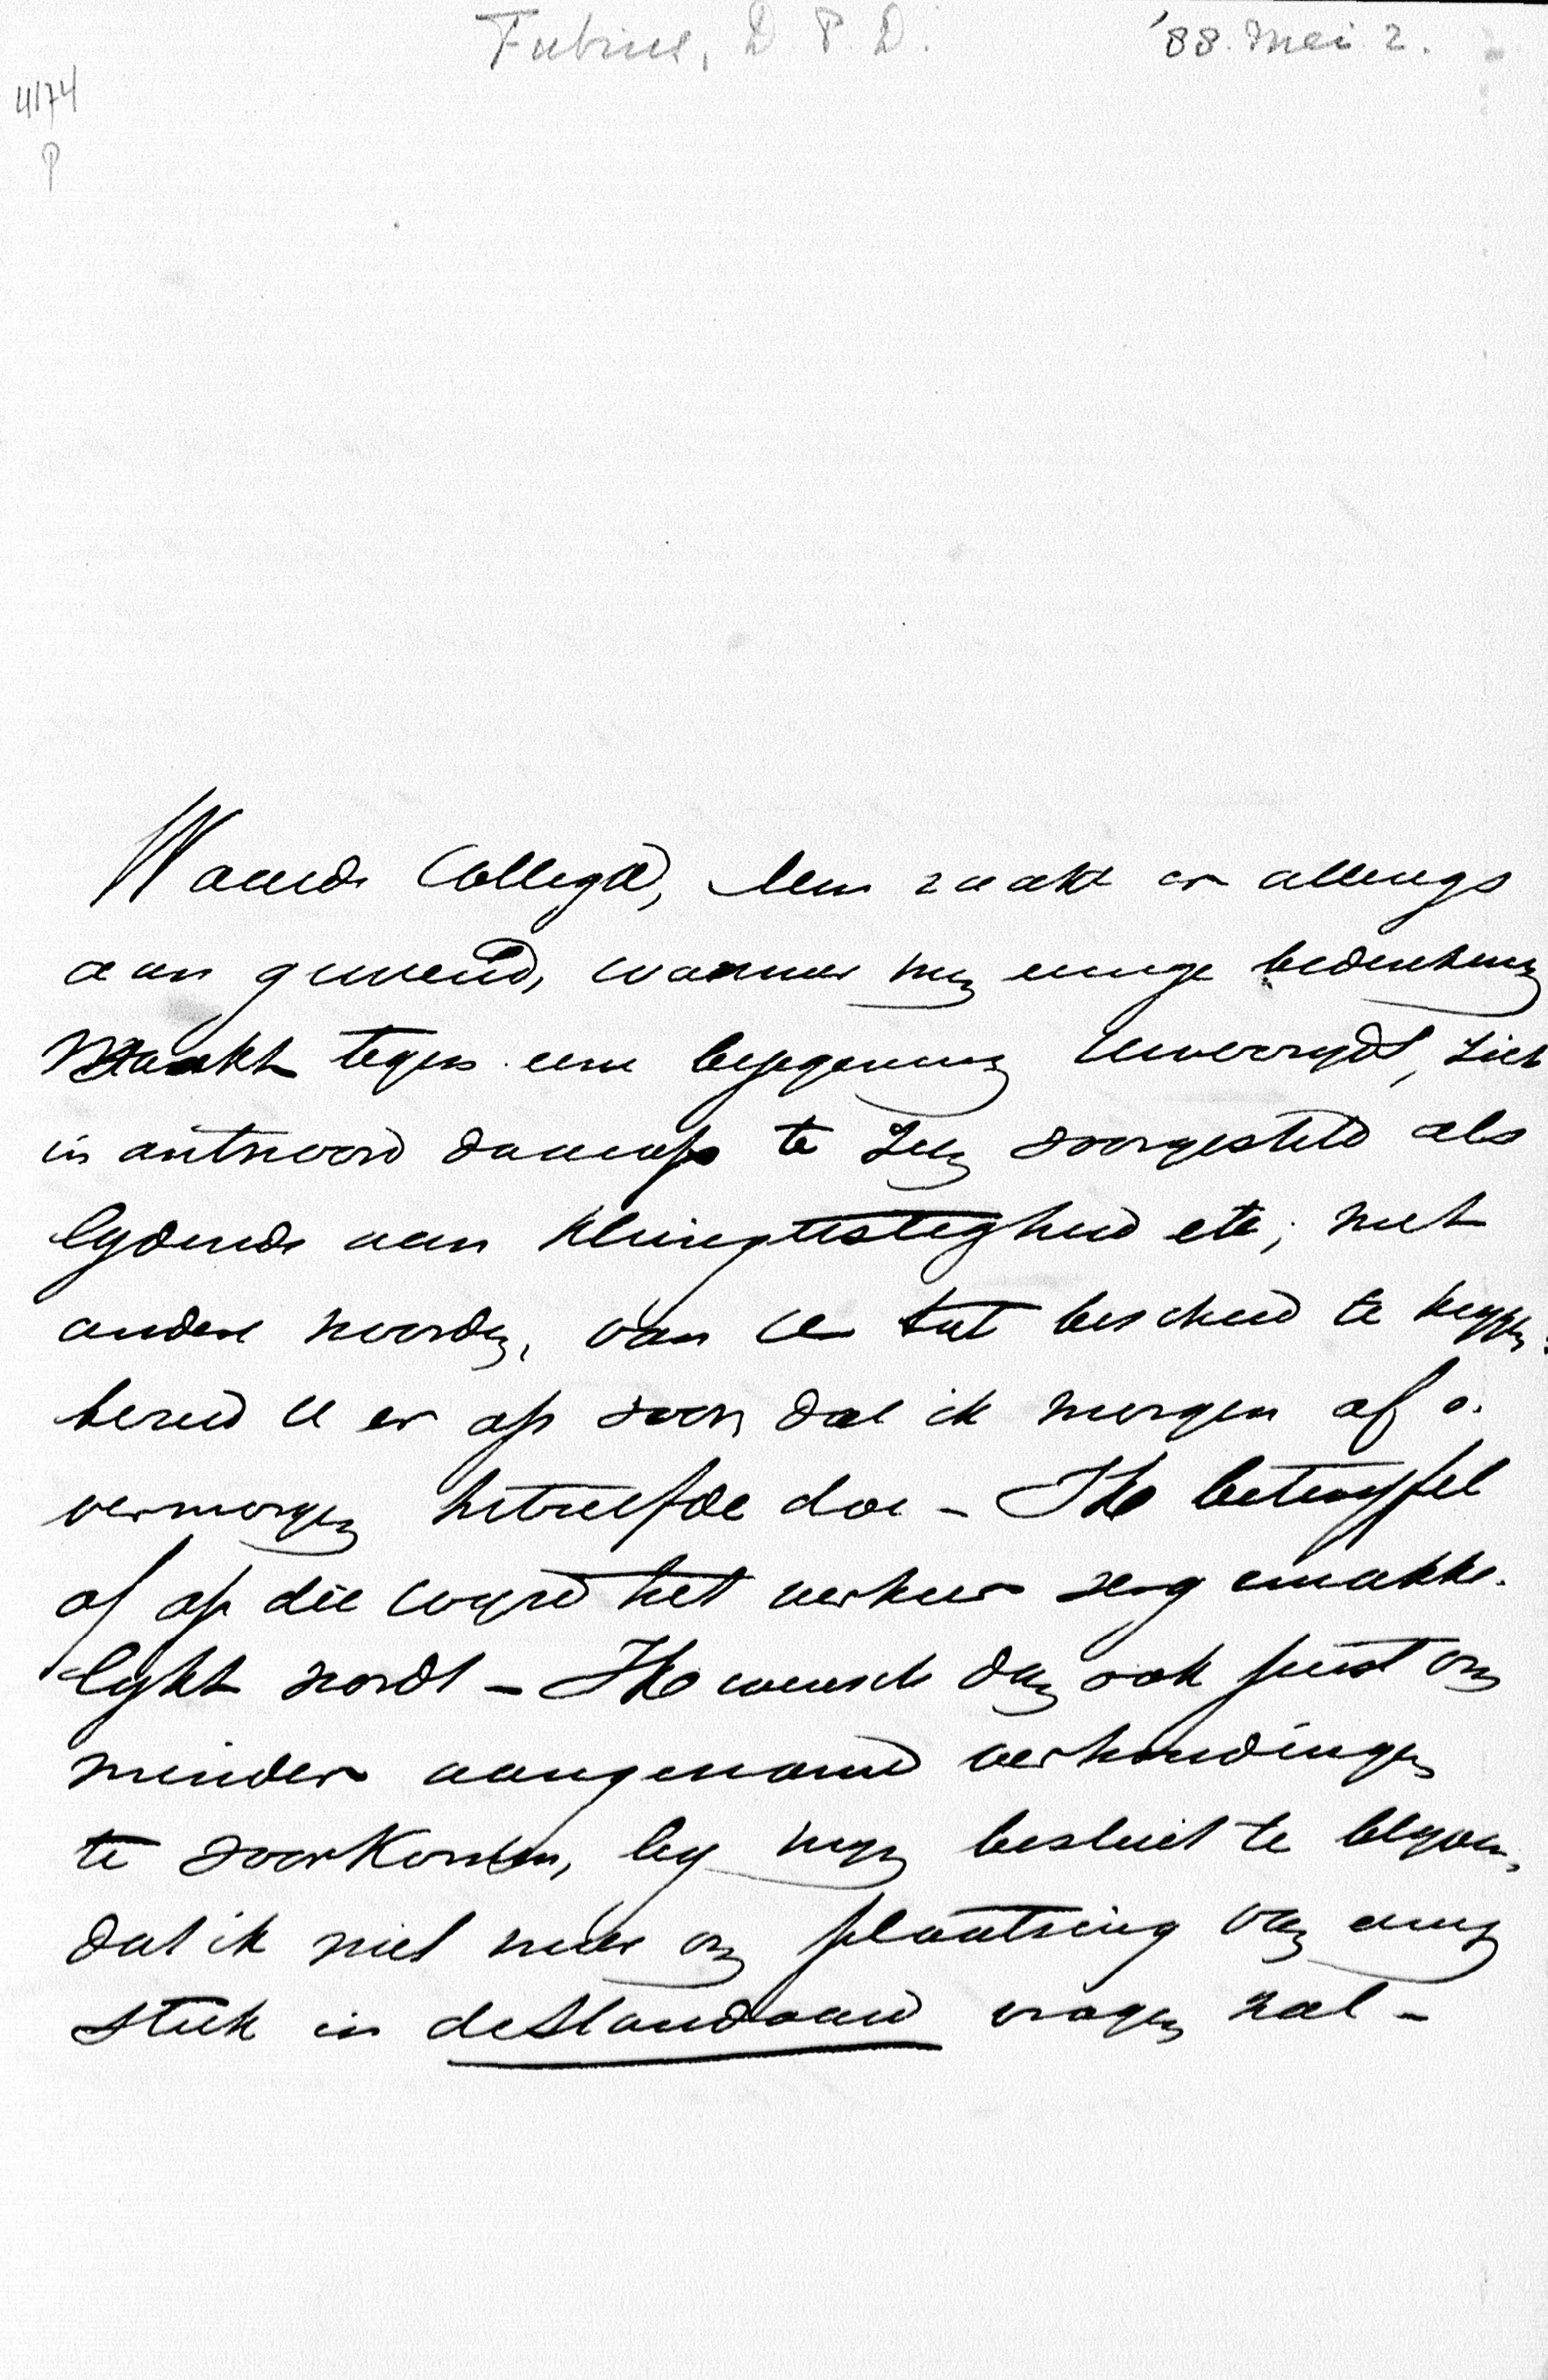 Fabius, D. P. D. '88. Mei 2.
4174
P
Waarde Collega, Men raakt er allengs
aan gewend, wanneer men eenige bedenking
maakt tegen eene bejegening Uwerzyds, zich
in antwoord daarop te zien voorgesteld als
lydende aan kleingeestigheid etc; met
andere woorden, van U tot bescheid te krygen:
bereid U er op voor, dat ik morgen of o-
vermorgen hetzelfde doe – Ik betwyfel
of op die wyze het verkeer vergemakke-
lykt wordt – Ik wensch dan ook juist om
minder aangename verhoudingen
te voorkomen, by myn besluit te blyven,
dat ik niet meer om plaatsing van eenig
stuk in de Standaard vragen zal –